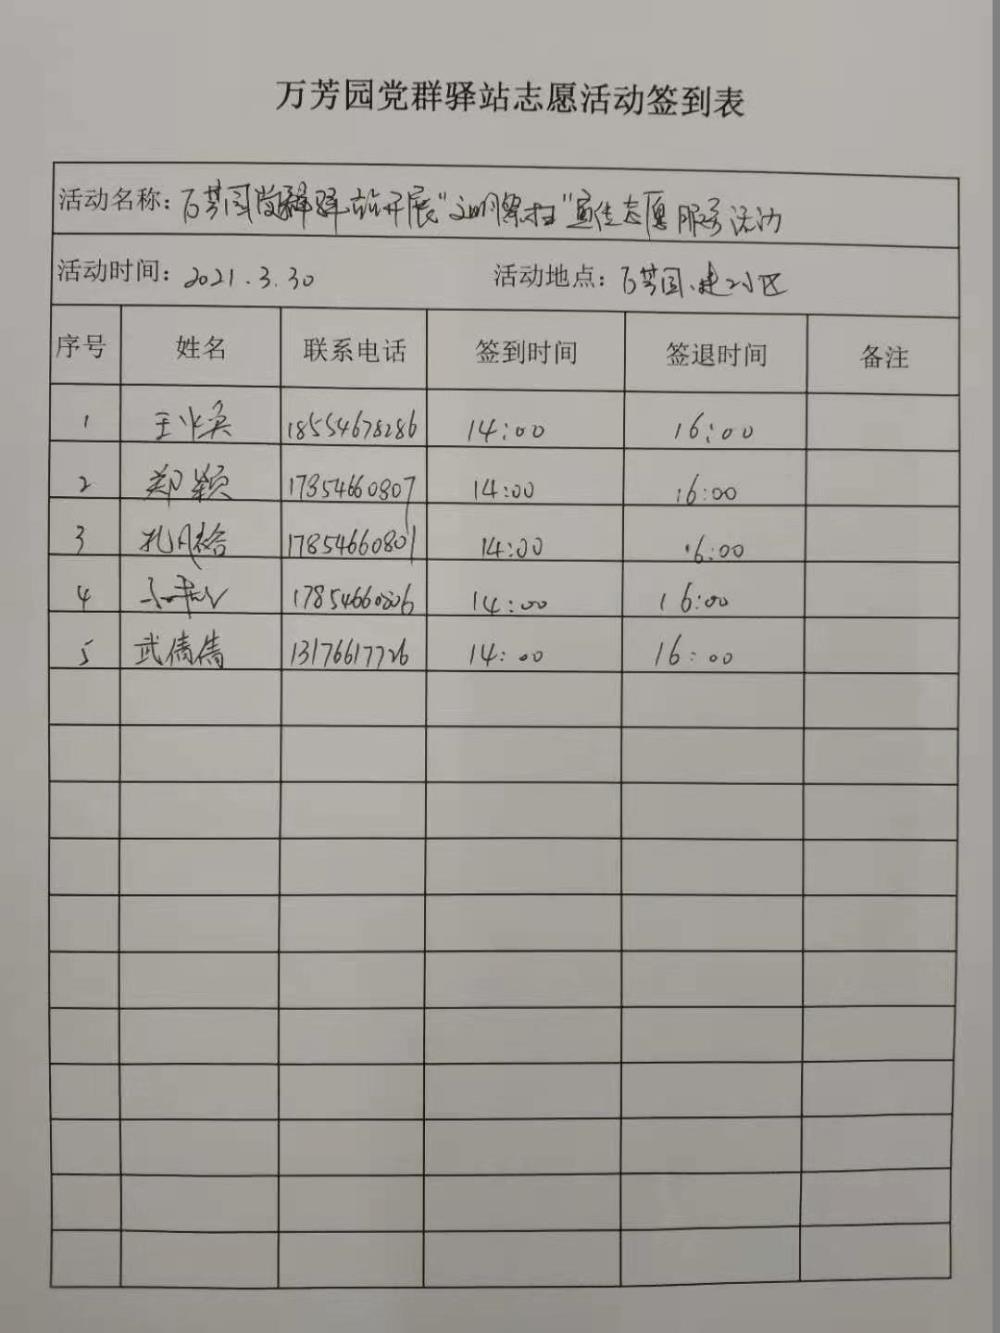 万芳园党群驿站志愿活动签到表
活动名称：万芳园党群驿站开展“文明祭扫”宣传志愿服务活动
活动时间：2021.3.30 活动地点：万芳园、建二小区
序号 姓名 联系电话 签到时间 签退时间 备注
1 王 18554678286 14:00 16:00
2 郑颖 17854660807 14:00 16:00
3 孔 17854660801 14:00 16:00
4 17854660806 14:00 16:00
5 武倩倩 13176617726 14:00 16:00